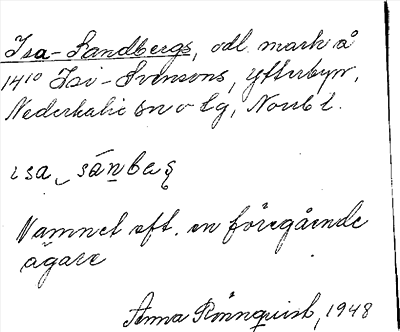 Isa-Sandbergs, odl. mark å
14¹⁰ Isi-Svensons, Ytterbyn,
Nederkalix sn o lg, Norrb l.
isa sänbæʂ
Namnet eft. en föregående
ägare
Anna Rönnquist, 1948